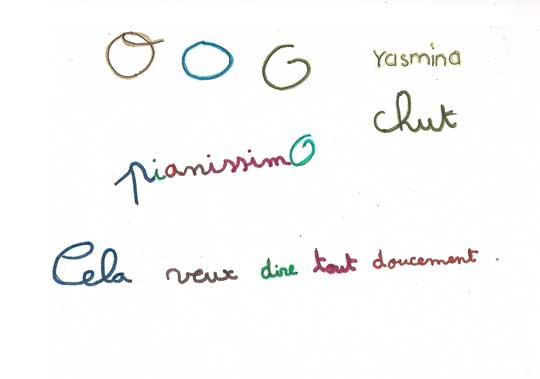 Yasmina
chut
pianissimo
Cela veux dire tout doucement .